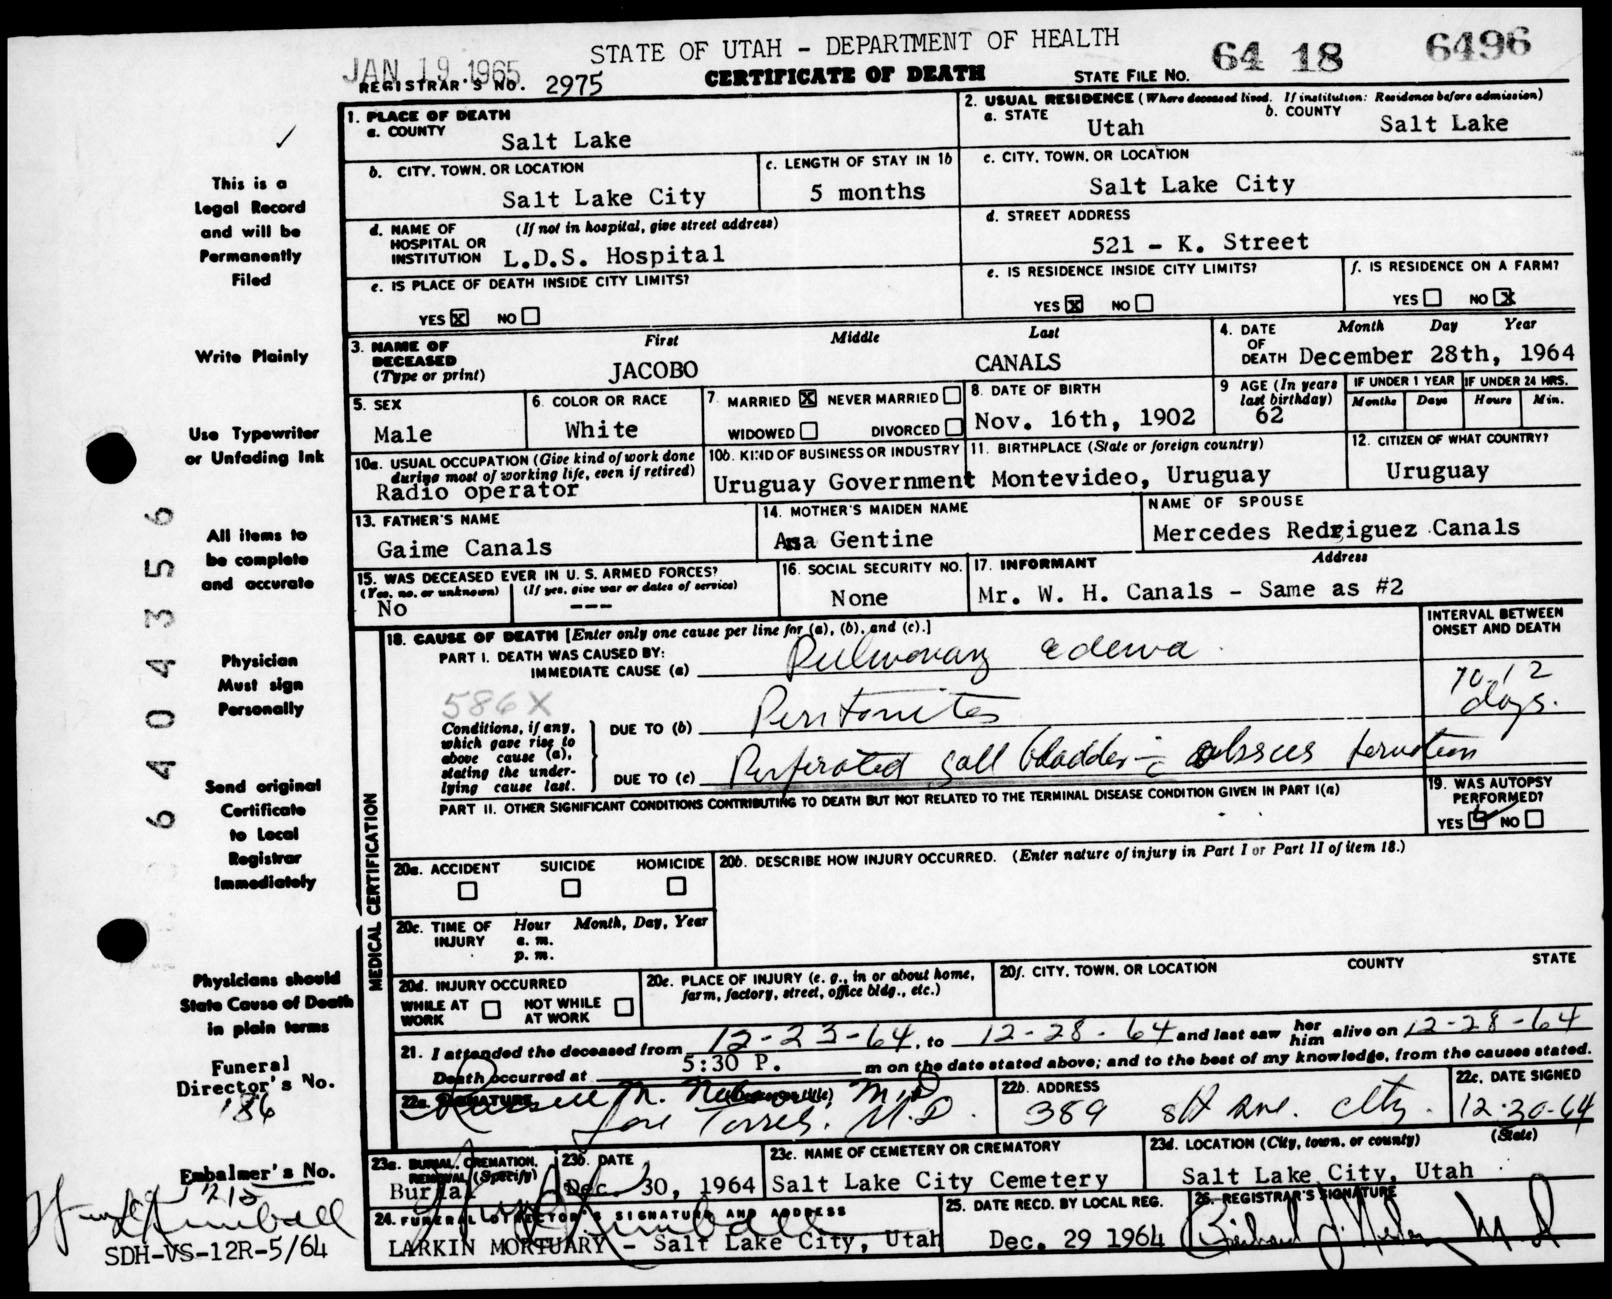 STATE OF UTAH - DEPARTMENT OF HEALTH
JAN 19 1965
REGISTRAR'S NO. 2975
CERTIFICATE OF DEATH
STATE FILE NO. 64 18 6496
1. PLACE OF DEATH
a. COUNTY
Salt Lake
2. USUAL RESIDENCE (Where deceased lived. If institution: Residence before admission)
a. STATE
Utah
b. COUNTY
Salt Lake
b. CITY, TOWN, OR LOCATION
Salt Lake City
c. LENGTH OF STAY IN 1b
5 months
c. CITY, TOWN, OR LOCATION
Salt Lake City
d. NAME OF HOSPITAL OR INSTITUTION
(If not in hospital, give street address)
L.D.S. Hospital
d. STREET ADDRESS
521 - K. Street
e. IS PLACE OF DEATH INSIDE CITY LIMITS?
YES X NO
e. IS RESIDENCE INSIDE CITY LIMITS?
YES X NO
f. IS RESIDENCE ON A FARM?
YES NO X
3. NAME OF DECEASED
(Type or print)
First Middle Last
JACOBO CANALS
4. DATE OF DEATH
Month Day Year
December 28th, 1964
5. SEX
Male
6. COLOR OR RACE
White
7. MARRIED X NEVER MARRIED
WIDOWED DIVORCED
8. DATE OF BIRTH
Nov. 16th, 1902
9 AGE (In years last birthday)
62
IF UNDER 1 YEAR
Months Days
IF UNDER 24 HRS.
Hours Min.
10a. USUAL OCCUPATION (Give kind of work done during most of working life, even if retired)
Radio operator
10b. KIND OF BUSINESS OR INDUSTRY
Uruguay Government
11. BIRTHPLACE (State or foreign country)
Montevideo, Uruguay
12. CITIZEN OF WHAT COUNTRY?
Uruguay
13. FATHER'S NAME
Gaime Canals
14. MOTHER'S MAIDEN NAME
Ana Gentine
NAME OF SPOUSE
Mercedes Redriguez Canals
15. WAS DECEASED EVER IN U. S. ARMED FORCES?
(Yes, no, or unknown) (If yes, give war or dates of service)
No ---
16. SOCIAL SECURITY NO.
None
17. INFORMANT Address
Mr. W. H. Canals - Same as #2
18. CAUSE OF DEATH [Enter only one cause per line for (a), (b), and (c).]
INTERVAL BETWEEN ONSET AND DEATH
PART I. DEATH WAS CAUSED BY:
IMMEDIATE CAUSE (a) Pulmonary edema
586X
Conditions, if any, which gave rise to above cause (a), stating the underlying cause last.
DUE TO (b) Peritonitis
10-12 days.
DUE TO (c) Perforated gall bladder c̄ abscess formation
PART II. OTHER SIGNIFICANT CONDITIONS CONTRIBUTING TO DEATH BUT NOT RELATED TO THE TERMINAL DISEASE CONDITION GIVEN IN PART I(a)
19. WAS AUTOPSY PERFORMED?
YES ✓ NO
MEDICAL CERTIFICATION
20a. ACCIDENT SUICIDE HOMICIDE
20b. DESCRIBE HOW INJURY OCCURRED. (Enter nature of injury in Part I or Part II of item 18.)
20c. TIME OF INJURY
Hour Month, Day, Year
a. m.
p. m.
20d. INJURY OCCURRED
WHILE AT WORK NOT WHILE AT WORK
20e. PLACE OF INJURY (e. g., in or about home, farm, factory, street, office bldg., etc.)
20f. CITY, TOWN, OR LOCATION COUNTY STATE
21. I attended the deceased from 12-23-64, to 12-28-64 and last saw her him alive on 12-28-64
Death occurred at 5:30 P. m on the date stated above; and to the best of my knowledge, from the causes stated.
22a. SIGNATURE
Russell M. Nelson M.D
Jose Torres, M.D.
22b. ADDRESS
389 8th Ave. City.
22c. DATE SIGNED
12-30-64
23a. BURIAL, CREMATION, REMOVAL (Specify)
Burial
23b. DATE
Dec. 30, 1964
23c. NAME OF CEMETERY OR CREMATORY
Salt Lake City Cemetery
23d. LOCATION (City, town, or county) (State)
Salt Lake City, Utah
24. FUNERAL DIRECTOR'S SIGNATURE AND ADDRESS
LARKIN MORTUARY - Salt Lake City, Utah
25. DATE RECD. BY LOCAL REG.
Dec. 29 1964
26. REGISTRAR'S SIGNATURE
M D
This is a
Legal Record
and will be
Permanently
Filed
Write Plainly
Use Typewriter
or Unfading Ink
All items to
be complete
and accurate
Physician
Must sign
Personally
Send original
Certificate
to Local
Registrar
Immediately
Physicians should
State Cause of Death
in plain terms
Funeral
Director's No.
186
Embalmer's No.
1212
Kimball
SDH-VS-12R-5/64
6404356